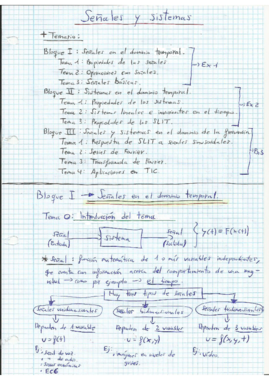 Señales y sistemas
+ Temario:
Bloque I: Señales en el dominio temporal.
Tema 1: Propiedades de las señales
Tema 2: Operaciones con señales.
Tema 3: Señales básicas.
Ex 1
Bloque II: Sistemas en el dominio temporal
Tema 1: Propiedades de los sistemas
Tema 2: Sistemas lineales e invariantes en el tiempo.
Tema 3: Propiedades de los SLIT.
Ex 2
Bloque III: Señales y sistemas en el dominio de la frecuencia
Tema 1: Respuesta de SLIT a señales sinusoidales.
Tema 2: Series de Fourier.
Tema 3: Transformada de Fourier.
Tema 4: Aplicaciones en TIC.
Ex 3
Bloque I → Señales en el dominio temporal
Tema 0: Introducción del tema
señal (Entrada)
Sistema
señal (Salida)
y(t) = F(x(t))
* Señal: función matemática de 1 o más variables independientes,
que contiene información acerca del comportamiento de una
→ como por ejemplo → el tiempo
Muy tipos de señales
Señales unidimensionales
Señales bidimensionales
Señales tridimensionales
Dependen de 1 variable
Dependen de 2 variables
Dependen de 3 variables
u = f(t)
u = f(x,y)
u = f(x,y,t)
Ej:
Señal de voz
" " de audio
ECG
Ej:
imágenes en escala de grises.
Ej:
Vídeo